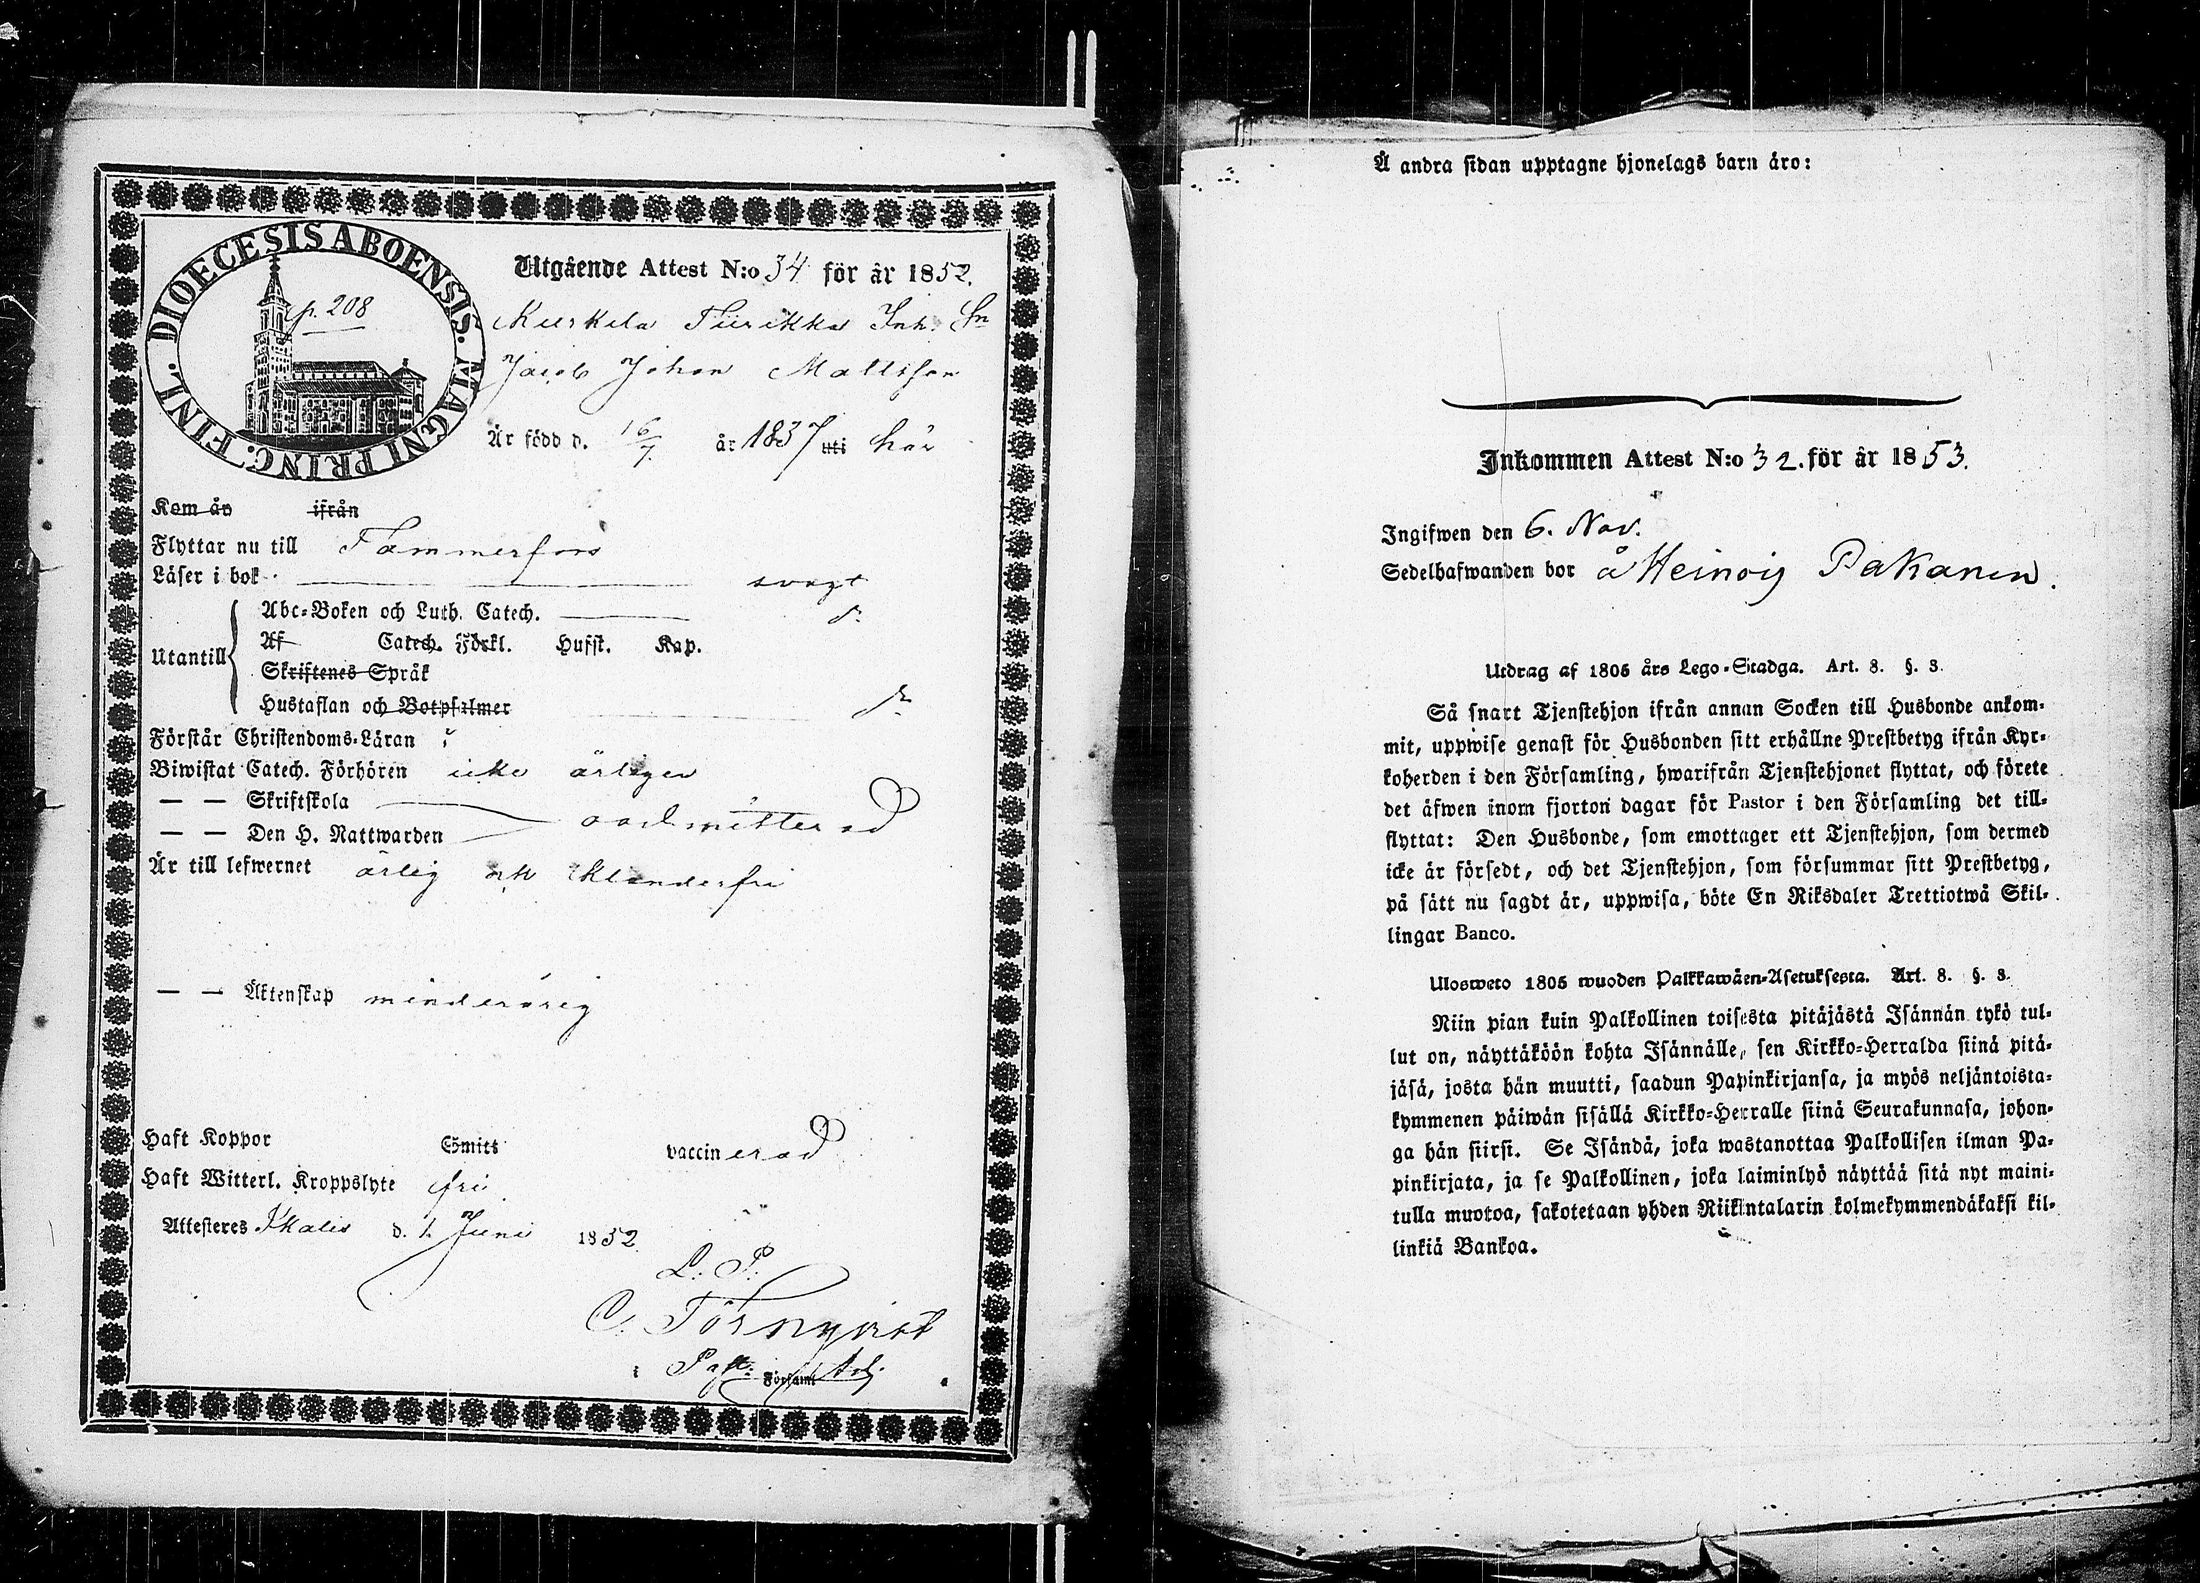 DIOECESIS ABOENSIS. MAGNI PRINC. FINL.
p. 208
Utgående Attest N:o 34 för år 1852.
Kurkela Tiirikka Inh. Sn
Jacob Johan Mattsson
Är född d. 16/7. år 1837 uti här
Kom år ifrån
Flyttar nu till Tammerfors
Läser i bok svagt
Utantill
Abc-Boken och Luth. Catech. d:o
Af Catech. Förkl. Hufst. Kap.
Skriftenes Språk
Hustaflan och Botpsalmer d:o
Förstår Christendoms-Läran
Biwistat Catech. Förhören icke årligen
— — Skriftskola
oadmitterad
— — Den H. Nattwarden
Är till lefwernet ärlig och klanderfri
— — Äktenskap minderårig
Haft Koppor Smitt vaccinerad
Haft Witterl. Kroppslyte fri
Attesteres Ikalis d. 1. Juni 1852
L. P.
C. Törnqvist
Past. Adj.
Församl
Å andra sidan upptagne hjonelags barn äro:
Inkommen Attest N:o 32. för år 1853.
Ingifwen den 6. Nov.
Sedelhafwanden bor å Heinois Pakanen.
Utdrag af 1805 års Lego-Stadga. Art. 8. §. 3.
Så snart Tjenstehjon ifrån annan Socken till Husbonde ankom-
mit, uppwise genast för Husbonden sitt erhållne Prestbetyg ifrån Kyr-
koherden i den Församling, hwarifrån Tjenstehjonet flyttat, och förete
det äfwen inom fjorton dagar för Pastor i den Församling det till-
flyttat: Den Husbonde, som emottager ett Tjenstehjon, som dermed
icke är försedt, och det Tjenstehjon, som försummar sitt Prestbetyg,
på sätt nu sagdt är, uppwisa, böte En Riksdaler Trettiotwå Skil-
lingar Banco.
Ulosweto 1805 wuoden Palkkawäen-Asetuksesta. Art. 8. §. 3.
Niin pian kuin Palkollinen toisesta pitäjästä Isännän tykö tul-
lut on, näyttäköön kohta Isännälle, sen Kirkko-Herralda siinä pitä-
jäsä, josta hän muutti, saadun Papinkirjansa, ja myös neljäntoista-
kymmenen päiwän sisällä Kirkko-Herralle siinä Seurakunnasa, johon-
ga hän siirsi. Se Isändä, joka wastanottaa Palkollisen ilman Pa-
pinkirjata, ja se Palkollinen, joka laiminlyö näyttää sitä nyt maini-
tulla muotoa, sakotetaan yhden Riikintalarin kolmekymmendäkaksi kil-
linkiä Bankoa.